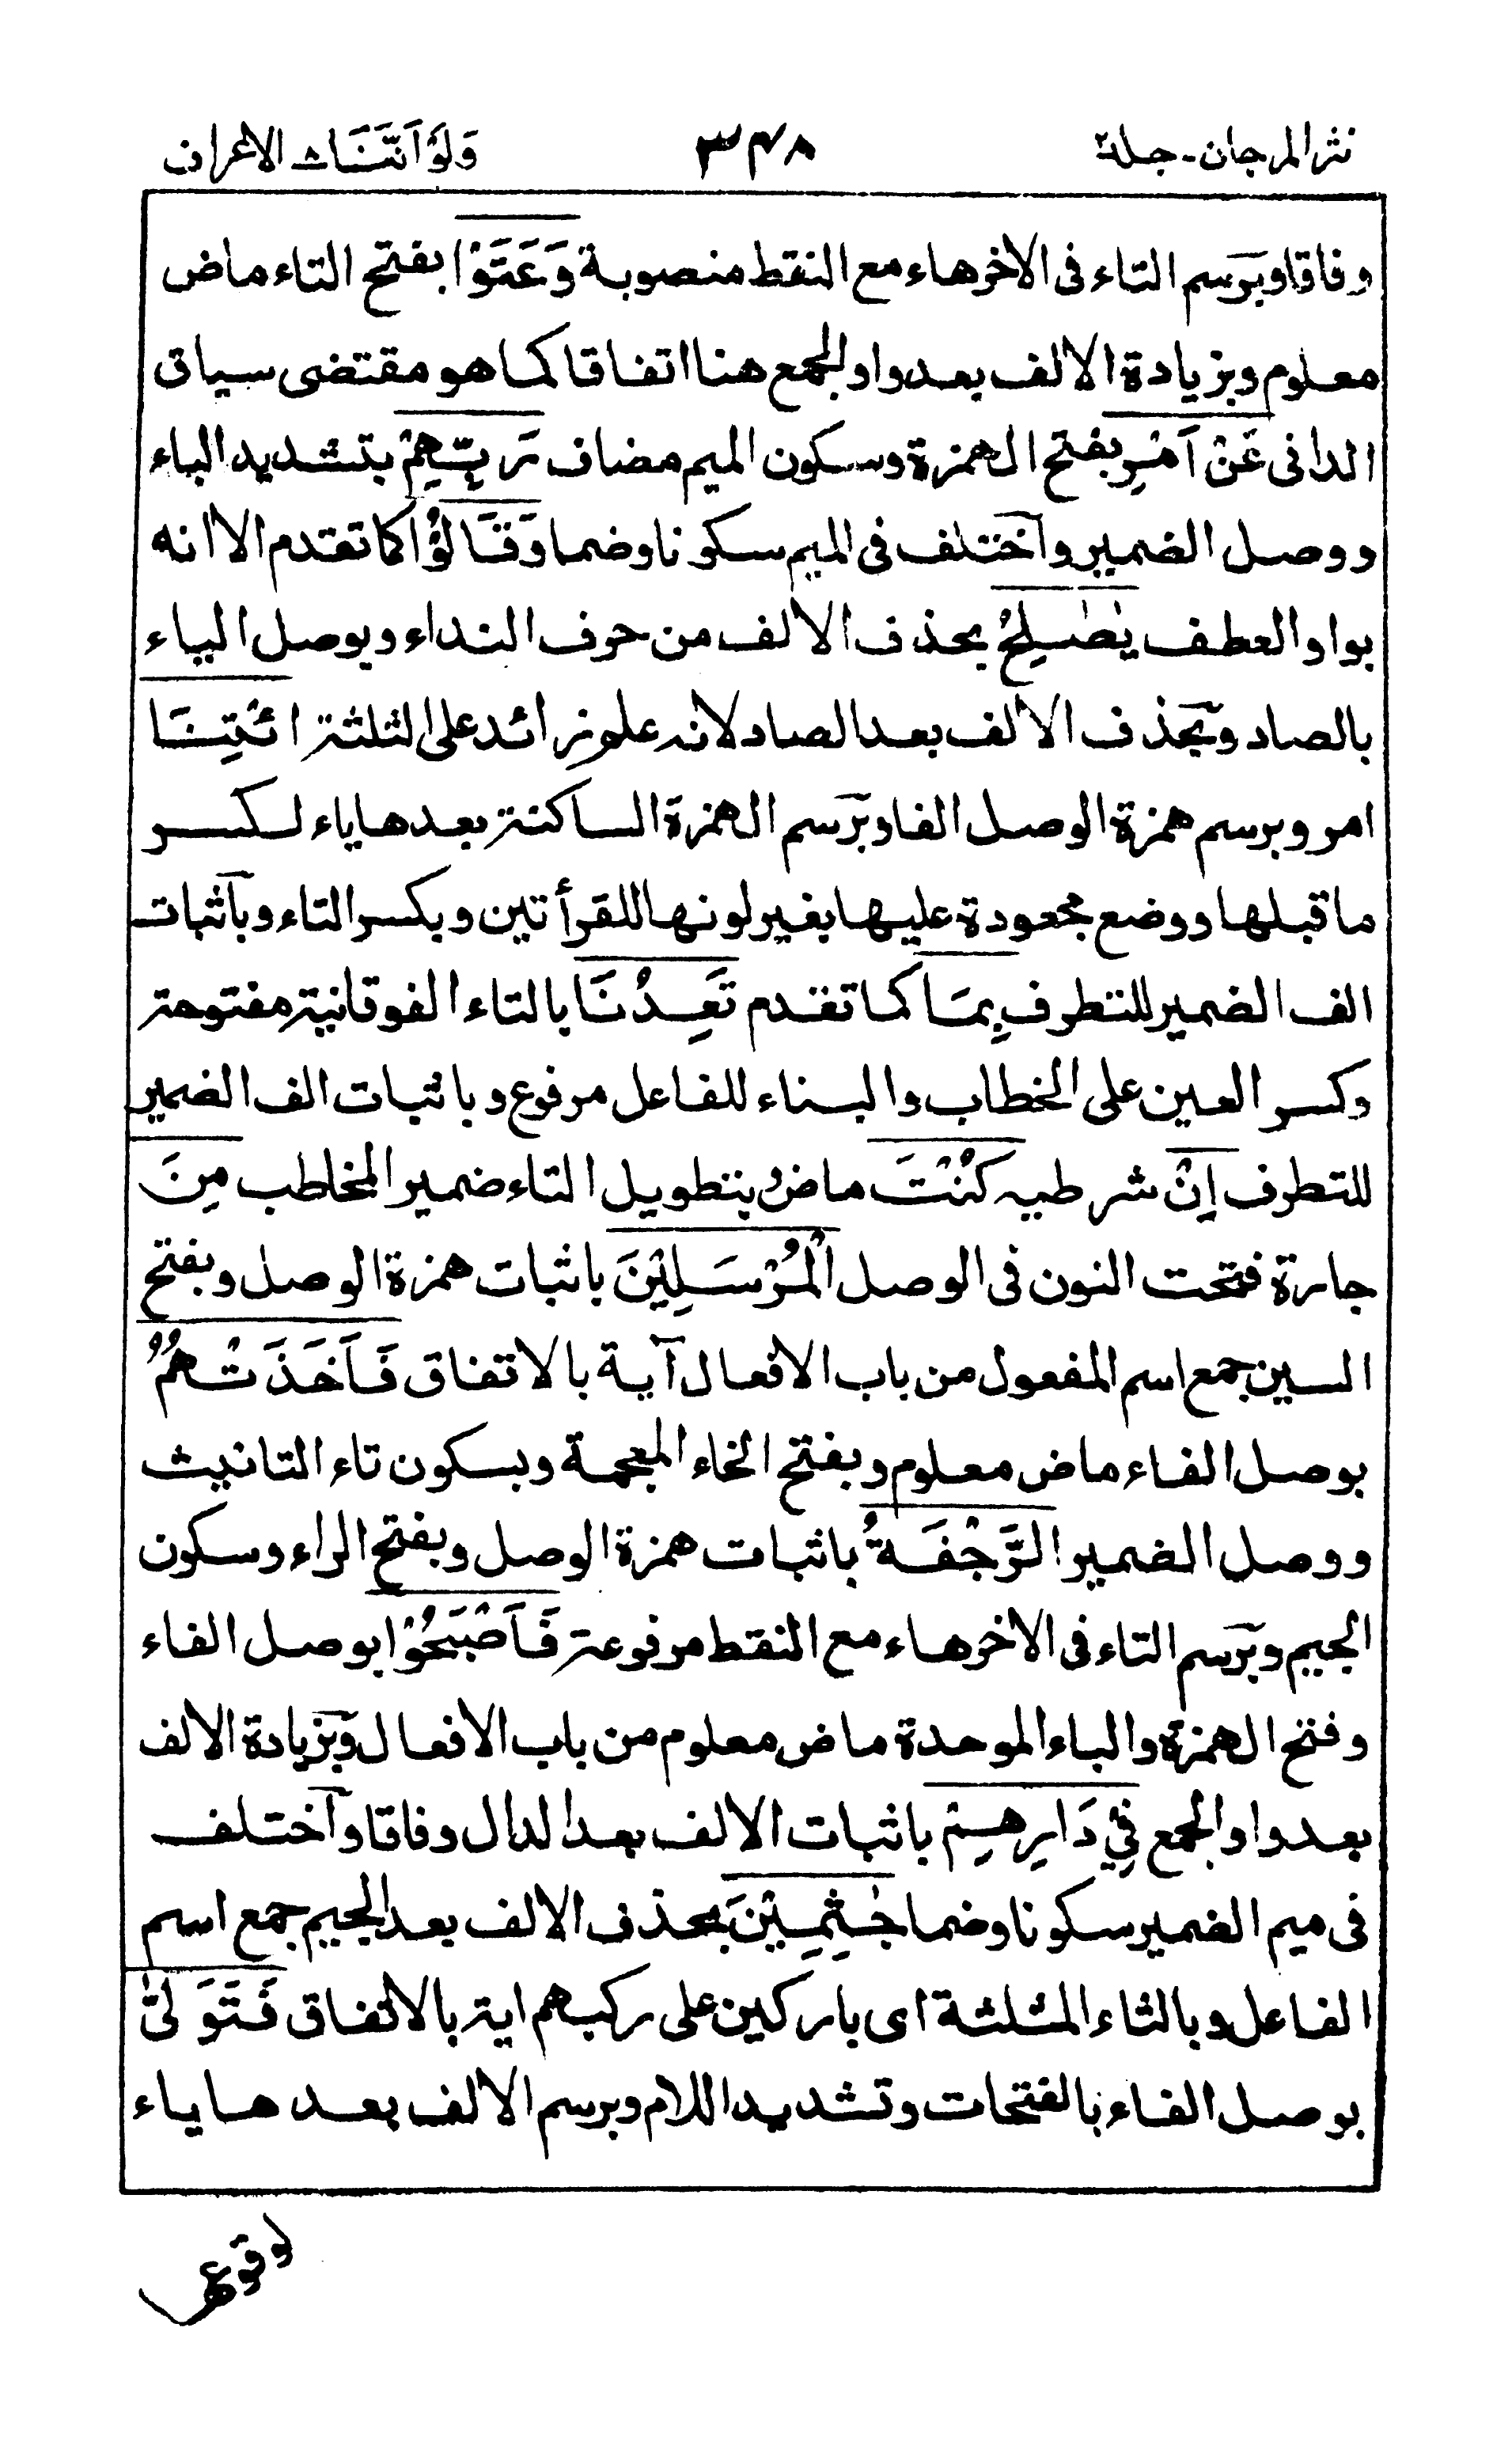 نثر المرجان - جلد٢ ٣٤٨ وَلَوْ اَنَّنَا ٨ الاعراف
وفاقا وبرسم التاء فى الاخر هاء مع النقط منصوبة وَعَتَوْا بفتح التاء ماض
معلوم وبزيادة الالف بعد واو الجمع هنا اتفاقا كما هو مقتضى سياق
الدانى عَنْ اَمْرِ بفتح الهمزة وسكون الميم مضاف رَبِّهِمْ بتشديد الباء
ووصل الضمير واختلف فى الميم سكونا وضما وَقَالُوْا كما تقدم الا انه
بواو العطف يٰصٰلِحُ بحذف الالف من حرف النداء وبوصل الياء
بالصاد وبحذف الالف بعد الصاد لانه علم زائد على الثلثة ائْتِنَا
امر وبرسم همزة الوصل الفا وبرسم الهمزة الساكنة بعدها ياء لكسر
ما قبلها ووضع مجعودة عليها بغير لونها للقرأتين وبكسر التاء وباثبات
الف الضمير للتطرف بِمَا كما تقدم تَعِدُنَا بالتاء الفوقانية مفتوحة
وكسر العين على الخطاب والبناء للفاعل مرفوع وباثبات الف الضمير
للتطرف اِنْ شرطيه كُنْتَ ماض بتطويل التاء ضمير المخاطب مِنَ
جارة فتحت النون فى الوصل الْمُرْسَلِيْنَ باثبات همزة الوصل وبفتح
السين جمع اسم المفعول من باب الافعال آية بالاتفاق فَاَخَذَتْهُمُ
بوصل الفاء ماض معلوم وبفتح الخاء المعجمة وبسكون تاء التانيث
ووصل الضمير الرَّجْفَةُ باثبات همزة الوصل وبفتح الراء وسكون
الجيم وبرسم التاء فى الاخر هاء مع النقط مرفوعة فَاَصْبَحُوْا بوصل الفاء
وفتح الهمزة والباء الموحدة ماض معلوم من باب الافعال وبزيادة الالف
بعد واو الجمع فِيْ دَارِهِمْ باثبات الالف بعد الدال وفاقا واختلف
فى ميم الضمير سكونا وضما جٰثِمِيْنَ بحذف الالف بعد الجيم جمع اسم
الفاعل وبالثاء المثلثة اى باركين على ركبهم اية بالاتفاق فَتَوَلّٰى
بوصل الفاء بالفتحات وتشديد اللام وبرسم الالف بعدها ياء
لوقوعها